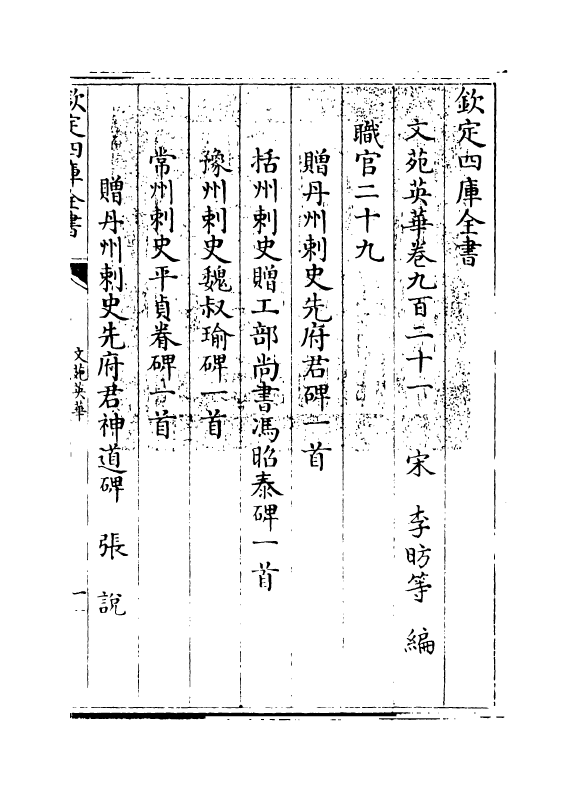 欽定四庫全書
文苑英華卷九百二十一　宋　李昉等　編
職官二十九
贈丹州刺史先府君碑一首
括州刺史贈工部尚書馮昭泰碑一首
豫州刺史魏叔瑜碑一首
常州刺史平貞眷碑一首
贈丹州刺史先府君神道碑　張　說
欽定四庫全書
文苑英華
一